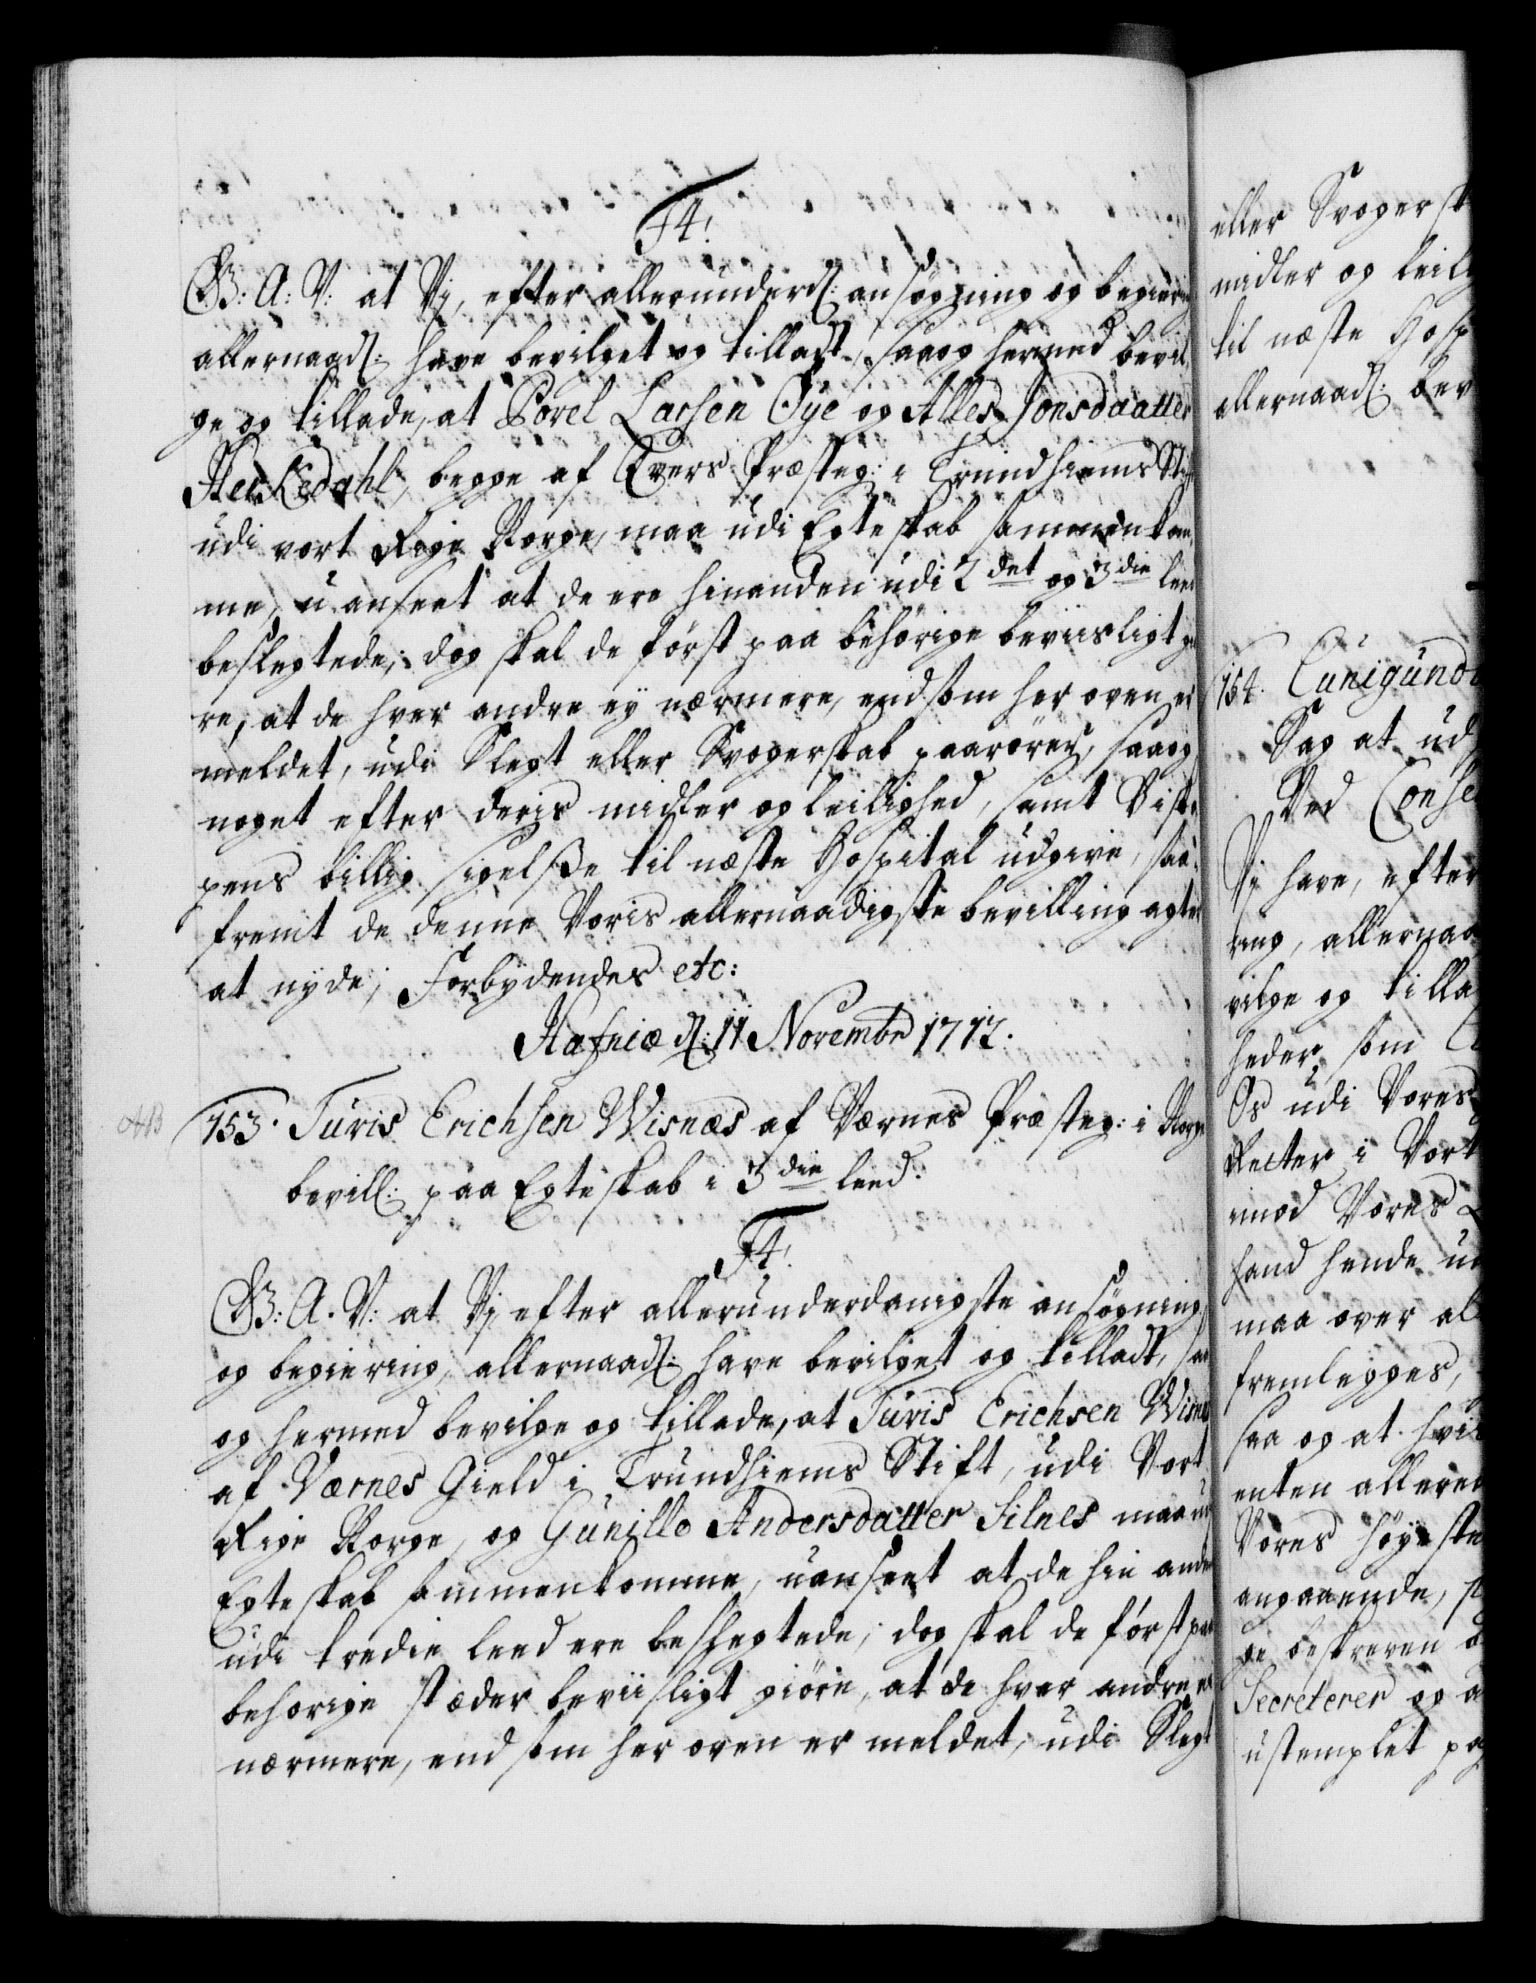 F4.
G: A: V: at Vj, efter allerunderd: ansøgning og begiering
allernaad: have bevilget og tilladt, saa og hermed bevil
ge og tillade, at Povel Larsen Øye og Alles Jonsdaatter
Herkedahl, begge af Qvers Præsteg: i Trundhiems Stift
udi vort Rige Norge, maa udi Egteskab sammenkom
me, uanseet at de ere hinanden udi 2det og 3die leed
beslegtede; dog skal de først paa behörige beviisligt giø
re, at de hver andre ey nærmere, end som her oven er
meldet, udi Slegt eller Svogerskab paarører, saa og
noget efter deris midler og leilighed, samt Biske
pens billig sigelsse til næste Hospital udgive, saa
fremt de denne Voris allernaadigste bevilling agter
at nyde; Forbydendes etc:
Hafniæ d: 11 Novembr 1712.
153. Turis Erichsen Wisnæs af Værnes Præsteg: i Norge
bevill: paa Egteskab i 3die leed.
F4.
G: A. V: at Vj efter allerunderdanigste ansøgning
og begiering, allernaad: have bevilget og tilladt, saa
og hermed bevilge og tillade, at Turis Erichsen Wisnes
af Værnes Gield i Trundhiems Stift, udi Vort
Rige Norge, og Gunille Andersdatter Silnes maa udi
Egteskab sammenkomme, uanseet at de hin anden
udi tredie leed ere beslegtede; dog skal de først paa
behorige stæder beviisligt giöre, at de hver andre ey
nærmere, end som her oven er meldet, udi Slegt
eller Svogersk
midler og leil
til næste Hosp
allernaad: bev
154. Cunigund
Sag at ud
Ved Conse
Vj have, efter
ring, allernaa
vilge og tilla
heder, som
Os udi Vores
Retter i Vort
imod Vores
hand hende
maa over al
fremlegges,
saa og at hvi
enten allere
Vores höyeste
angaaende,
ge beskreven
Secreterer og a
ustemplet pa